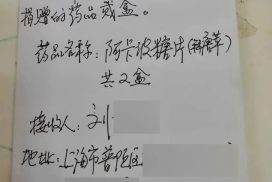 捐赠的药品贰盒。
药品名称：阿卡波糖片(拜唐苹)
共2盒
接收人：刘
地址：上海市普陀区